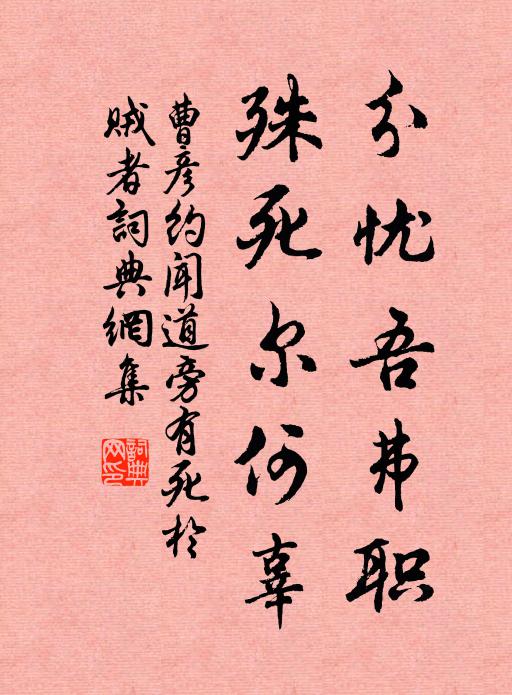 分忧吾弗职
殊死尔何辜
曹彦约闻道旁有死於
贼者詞典網集
詞典网印